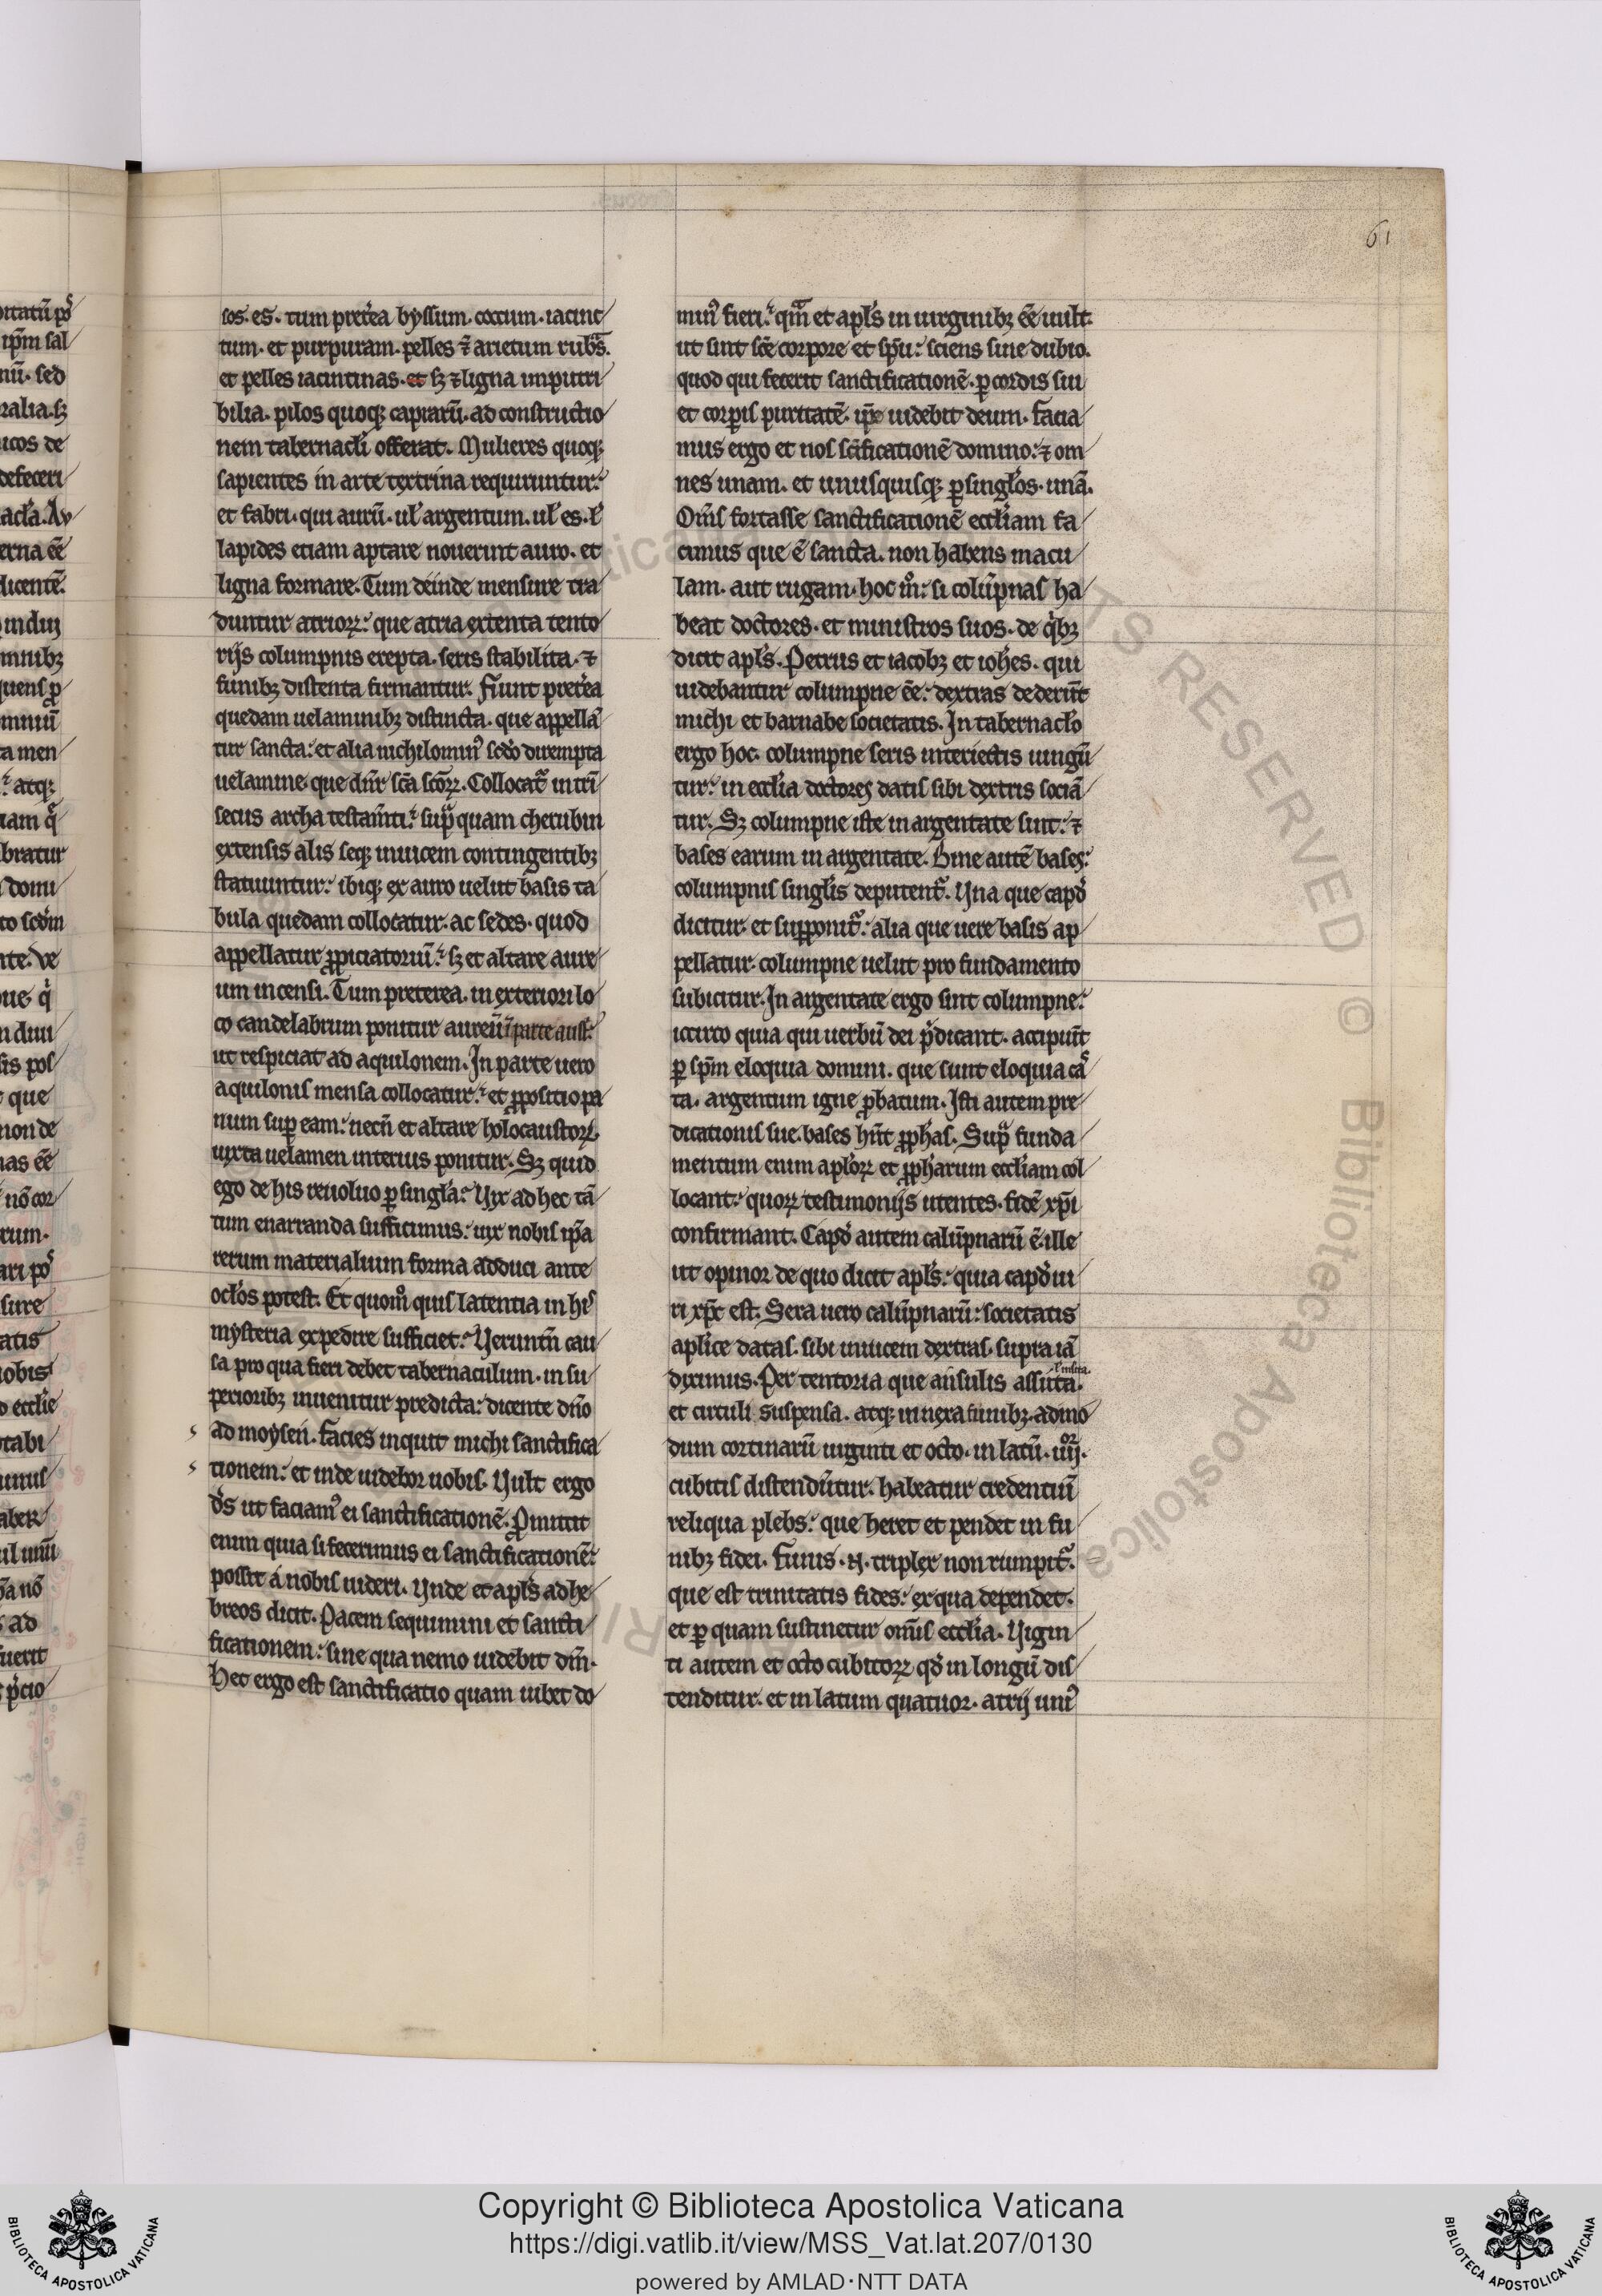 61
sos. es. tum pret̾ea byssum. coccum. iacinc
tum. et purpuram. pelles ⁊ arietum rubs̾.
et pelles iacintinas. et sꝫ ⁊ ligna imputri
bilia. pilos quoqꝫ caprarū. ad constructio
nem tabernacl̾i offerat. Mulieres quoqꝫ
sapientes in arte textrina requiruntur.
et fabri. qui aurū. ul̾ argentum. ul̾ es. l̾
lapides etiam aptare nouerint auro. et
ligna formare. Tum deinde mensure tra
duntur atrioꝝ: que atria extenta tento
rijs columpnis erepta. seris stabilita. ⁊
funibꝫ distenta firmantur. Fiunt pret̾ea
quedam uelaminibꝫ distincta. que appellā
tur sancta: et alia nichilomin᷒ scd̾o dirempta
uelamine que dn̄r sc̄a sc̄oꝝ. Collocat᷑ intrī
secus archa testam̄ti: supᷓ quam cherubin
extensis alis seqꝫ inuicem contingentibꝫ
statuuntur: ibiqꝫ ex auro uelut basis ta
bula quedam collocatur. ac sedes. quod
appellatur ꝓpiciatoriū: sꝫ et altare aure
um incensi. Tum preterea. in exteriori lo
co candelabrum ponitur aureū ī parte aust̾.
ut respiciat ad aquilonem. In parte uero
aquilonis mensa collocatur: et ꝓpositio pa
num suꝑ eam: necn̄ et altare holocaustoꝝ.
iuxta uelamen interius ponitur. Sꝫ quid
ego de his reuoluo ꝑ singl̾a: Vix ad hec tā
tum enarranda sufficimus: uix nobis ip̄a
rerum materialium forma adduci ante
ocl̾os potest. Et quom̊ quis latentia in his
mysteria expedire sufficiet: Veruntn̄ cau
sa pro qua fieri debet tabernaculum. in su
perioribꝫ inuenitur predicta: dicente dn̄o
ad moysen. Facies inquit michi sanctifica
tionem: et inde uidebor uobis. Vult ergo
d̾s ut faciam᷒ ei sanctificationē. Ꝓmittit
enim quia si fecerimus ei sanctificationē:
possit a nobis uideri. Vnde et apl̾s ad he
breos dicit. Pacem sequimini et sancti
ficationem: sine qua nemo uidebit dm̄.
Hec ergo est sanctificatio quam iubet do
min᷒ fieri: qm̄ et apl̾s in uirginibꝫ eē uult.
ut sint sc̄e corpore et sp̄u: sciens sine dubio.
quod qui fecerit sanctificationē. ꝑ cordis sui
et corpis puritatē. ip̄e uidebit deum. Facia
mus ergo et nos sc̄ificationē domino: ⁊ om
nes unam. et unusquisqꝫ ꝑ singl̾os. unā.
Om̄s fortasse sanctificationē eccl̾iam fa
cimus que ē sancta. non habens macu
lam. aut rugam. hoc m̊: si colūpnas ha
beat doctores. et ministros suos. de q̾bꝫ
dicit apl̾s. Petrus et iacobꝫ et ioh̾es. qui
uidebantur columpne eē: dextras dederūt
michi et barnabe societatis. In tabernacl̾o
ergo hoc. columpne seris interiectis iungū
tur: in eccl̾ia doctores datis sibi dextris sociā
tur. Sꝫ columpne iste inargentate sint: ⁊
bases earum inargentate. Bine autē bases:
columpnis singl̾is deputent᷑. Vna que capd̾
dicitur et supponit᷑: alia que uere basis ap
pellatur. columpne uelut pro fundamento
subicitur. In argentate ergo sint columpne:
iccirco quia qui uerbū dei p̾dicant. accipiūt
ꝑ sp̄m eloquia domini. que sunt eloquia cas̾
ta. argentum igne ꝓbatum. Isti autem pre
dicationis sue. bases hn̄t ꝓph̾as. Supᷓ funda
mentum enim apl̾oꝝ et ꝓph̾arum eccl̾iam col
locant: quoꝝ testimonijs utentes. fidē xp̄i
confirmant. Capd̾ autem calūpnarū ē ille
ut opinor de quo dicit apl̾s: quia capd̾ ui
ri xp̄c est. Sera uero calūpnarū: societatis
apl̾ice datas. sibi inuicem dextras. supra iā
diximus. Per tentoria que ansulis assuta.
l̾ insita
et circuli suspensa. atqꝫ innexa funibꝫ. ad mo
dum cortinarū uiginti et octo. in latū. iiij.or
cubitis distendūtur. habeatur credentiū
reliqua plebs: que heret et pendet in fu
nibꝫ fidei. Funis .N. triplex non rumpit᷑.
que est trinitatis fides: ex qua dependet.
et ꝑ quam sustinetur om̄is eccl̾ia. Vigin
ti autem et octo cubitoꝝ qd̾ in longū dis
tenditur. et in latum quatuor. atrij uni᷒
Copyright © Biblioteca Apostolica Vaticana
https://digi.vatlib.it/view/MSS_Vat.lat.207/0130
powered by AMLAD·NTT DATA
BIBLIOTECA APOSTOLICA VATICANA
BIBLIOTECA APOSTOLICA VATICANA